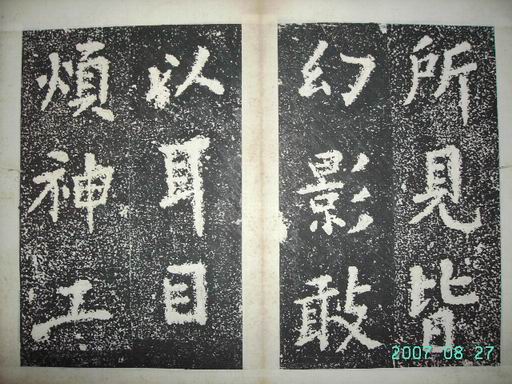 所見皆
幻影敢
以耳目
煩神工
2007 08 27